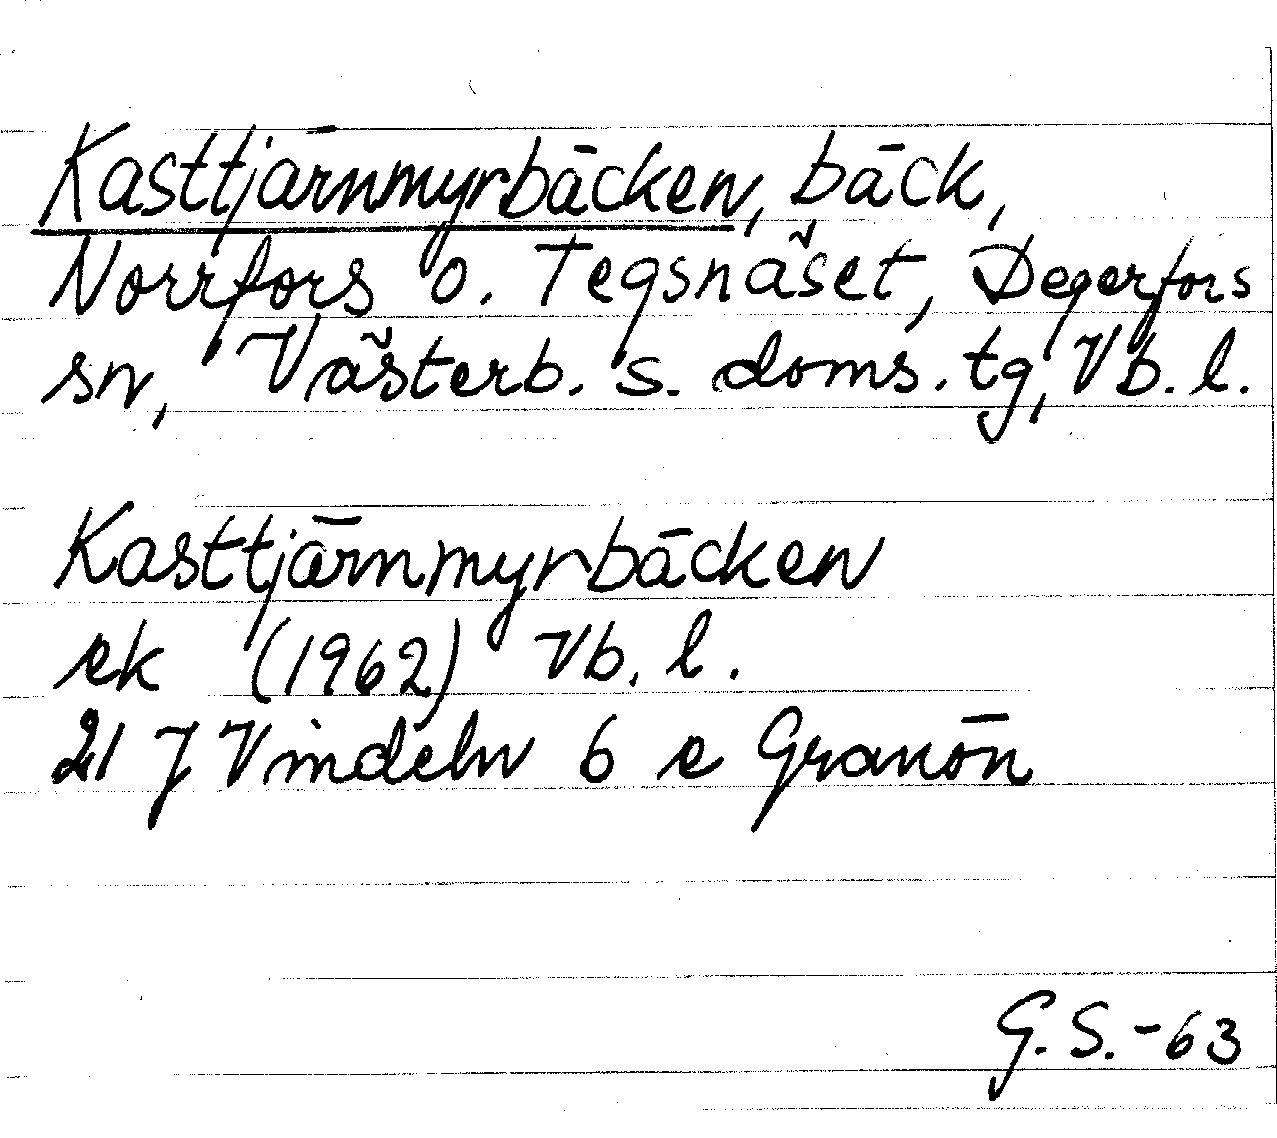 Kasttjärnmyrbäcken, bäck,
Norrfors o. Tegsnäset, Degerfors
sn, Västerb. s. doms. tg, Vb. l.
Kasttjärnmyrbäcken
ek (1962) Vb. l.
21 J Vindeln 6 e Granön
G. S. - 63